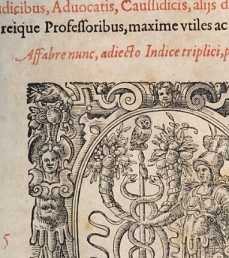 udicibus, Aduocatis, Caussidicis, alijs d
reique Professoribus, maxime vtiles ac
Affabre nunc, adiecto Indice triplici, p
5